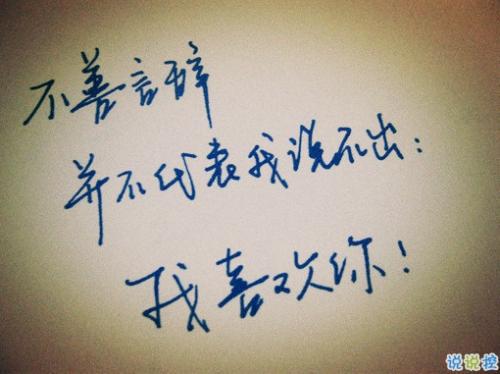 不善言辞
并不代表我说不出：
我喜欢你！
说说控